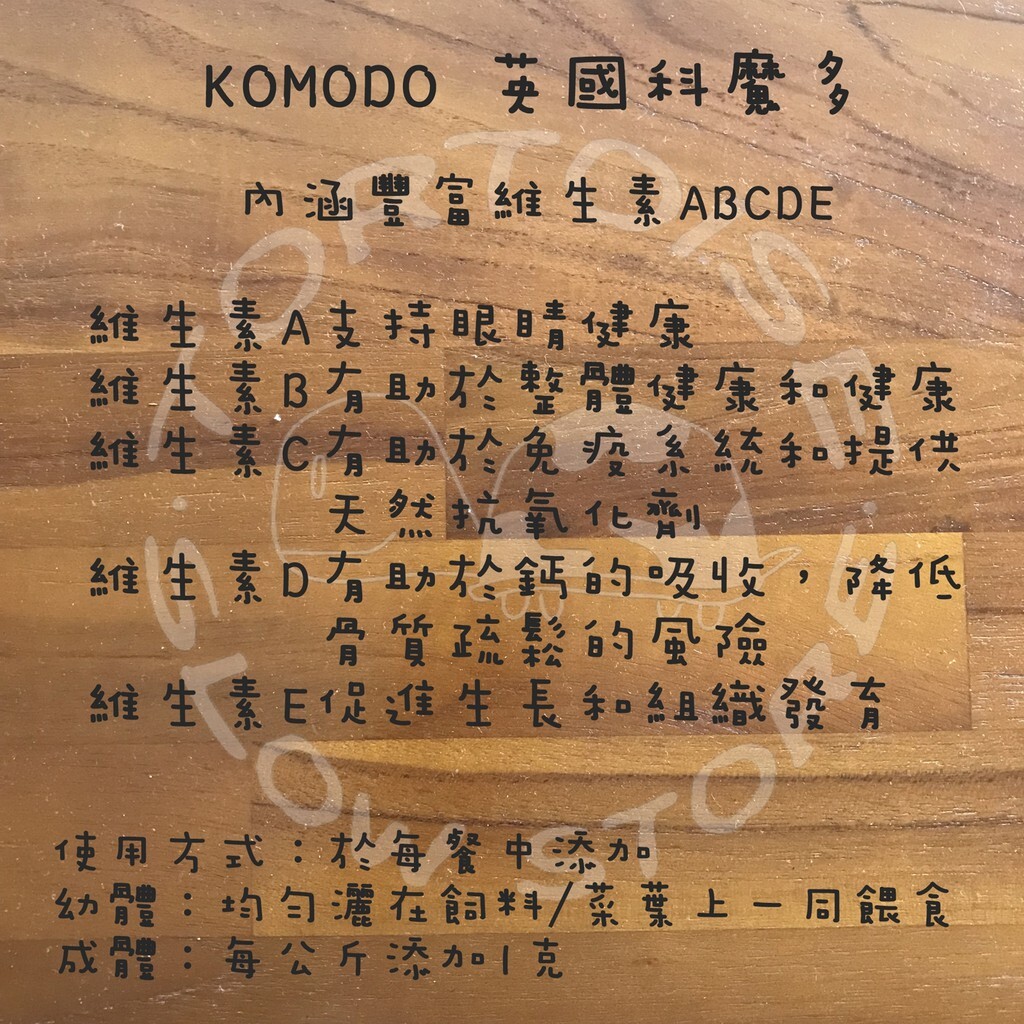 KOMODO 英國科魔多
內涵豐富維生素ABCDE
維生素A支持眼睛健康
維生素B有助於整體健康和健康
維生素C有助於免疫系統和提供
天然抗氧化劑
維生素D有助於鈣的吸收，降低
骨質疏鬆的風險
維生素E促進生長和組織發育
使用方式：於每餐中添加
幼體：均勻灑在飼料/菜葉上一同餵食
成體：每公斤添加1克
TORTOISE.
S.LOW STORE